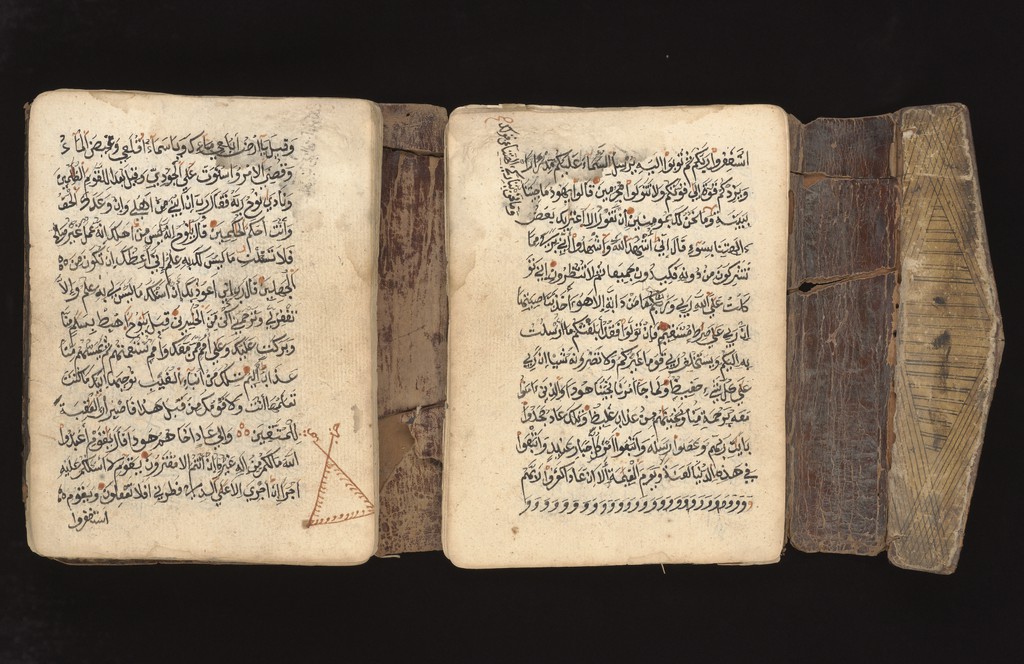 وقيل يا ارض ابلعي ماءك ويا سماء اقلعي وغيض الماء
وقضي الامر واستوت على الجودي وقيل بعدا للقوم الظلمين
ونادى نوح ربه فقال رب ان ابني من اهلي وان وعدك الحق
وانت احكم الحكمين قال ينوح انه ليس من اهلك انه عمل غير صلح
فلا تسئلن ما ليس لك به علم اني اعظك ان تكون من
الجهلين قال رب اني اعوذ بك ان اسئلك ما ليس لي به علم والا
تغفر لي وترحمني اكن من الخسرين قيل ينوح اهبط بسلم منا
وبركت عليك وعلى امم ممن معك وامم سنمتعهم ثم يمسهم منا
عذاب اليم تلك من انباء الغيب نوحيها اليك ما كنت
تعلمها انت ولا قومك من قبل هذا فاصبر ان العقبة
للمتقين والى عاد اخاهم هودا قال يقوم اعبدوا
الله ما لكم من اله غيره ان انتم الا مفترون يقوم لا اسئلكم عليه
اجرا ان اجري الا على الذي فطرني افلا تعقلون ويقوم
استغفروا
استغفروا ربكم ثم توبوا اليه يرسل السماء عليكم مدرارا
ويزدكم قوة الى قوتكم ولا تتولوا مجرمين قالوا يهود ما جئتنا
ببينة وما نحن لك بمومنين ان نقول الا اعتريك بعض
الهتنا بسوء قال اني اشهد الله واشهدوا اني بريء مما
تشركون من دونه فكيدوني جميعا ثم لا تنظرون اني تو
كلت على الله ربي وربكم ما من دابة الا هو اخذ بناصيتها
ان ربي على صراط مستقيم فان تولوا فقد ابلغتكم ما ارسلت
به اليكم ويستخلف ربي قوما غيركم ولا تضرونه شيا ان ربي
على كل شيء حفيظ ولما جاء امرنا نجينا هودا والذين امنوا
معه برحمة منا ونجينهم من عذاب غليظ وتلك عاد جحدوا
بايت ربهم وعصوا رسله واتبعوا امر كل جبار عنيد واتبعوا
في هذه الدنيا لعنة ويوم القيمة الا ان عادا كفروا ربهم